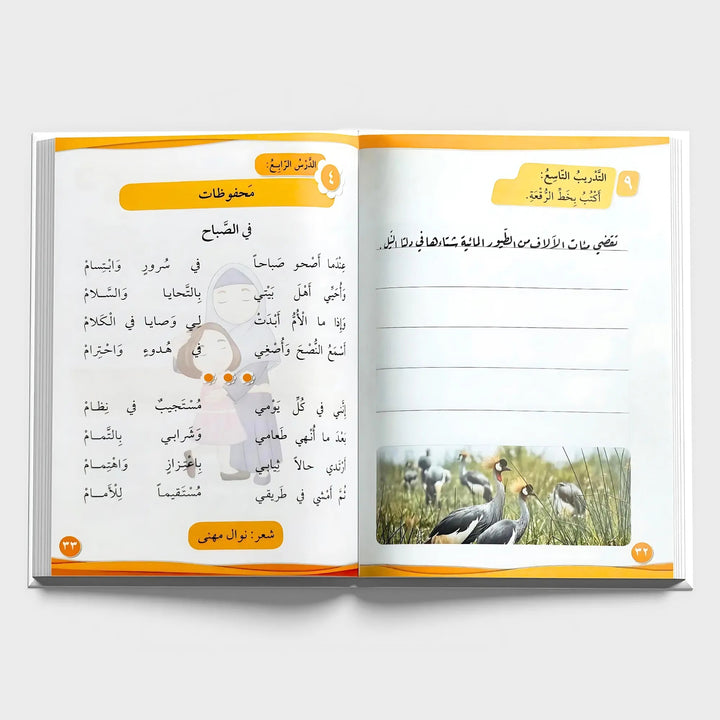 ٩
التَّدْرِيبُ التَّاسِعُ:
أَكْتُبُ بِخَطِّ الرُّقْعَةِ.
تقضي مئات الآلاف من الطّيور المائية شتاءها في دلتا النّيل.
٣٢
٤
الدَّرْسُ الرَّابِعُ:
مَحفوظات
في الصَّباح
عِنْدَما أَصْحو صَباحاً في سُرورٍ وَابْتِسامْ
وَأُحَيِّي أَهْلَ بَيْتي بِالتَّحايا وَالسَّلامْ
وَإِذا ما الْأُمُّ أَبْدَتْ لي وَصايا في الْكَلامْ
أَسْمَعُ النُّصْحَ وَأُصْغِي في هُدوءٍ وَاحْتِرامْ
إِنَّني في كُلِّ يَوْمي مُسْتَجيبٌ في نِظامْ
بَعْدَ ما أُنْهي طَعامي وَشَرابي بِالتَّمامْ
أَرْتَدي حالاً ثِيابي بِاعْتِزازٍ وَاهْتِمامْ
ثُمَّ أَمْشي في طَريقي مُسْتَقيماً لِلْأَمامْ
شعر: نوال مهنى
٣٣